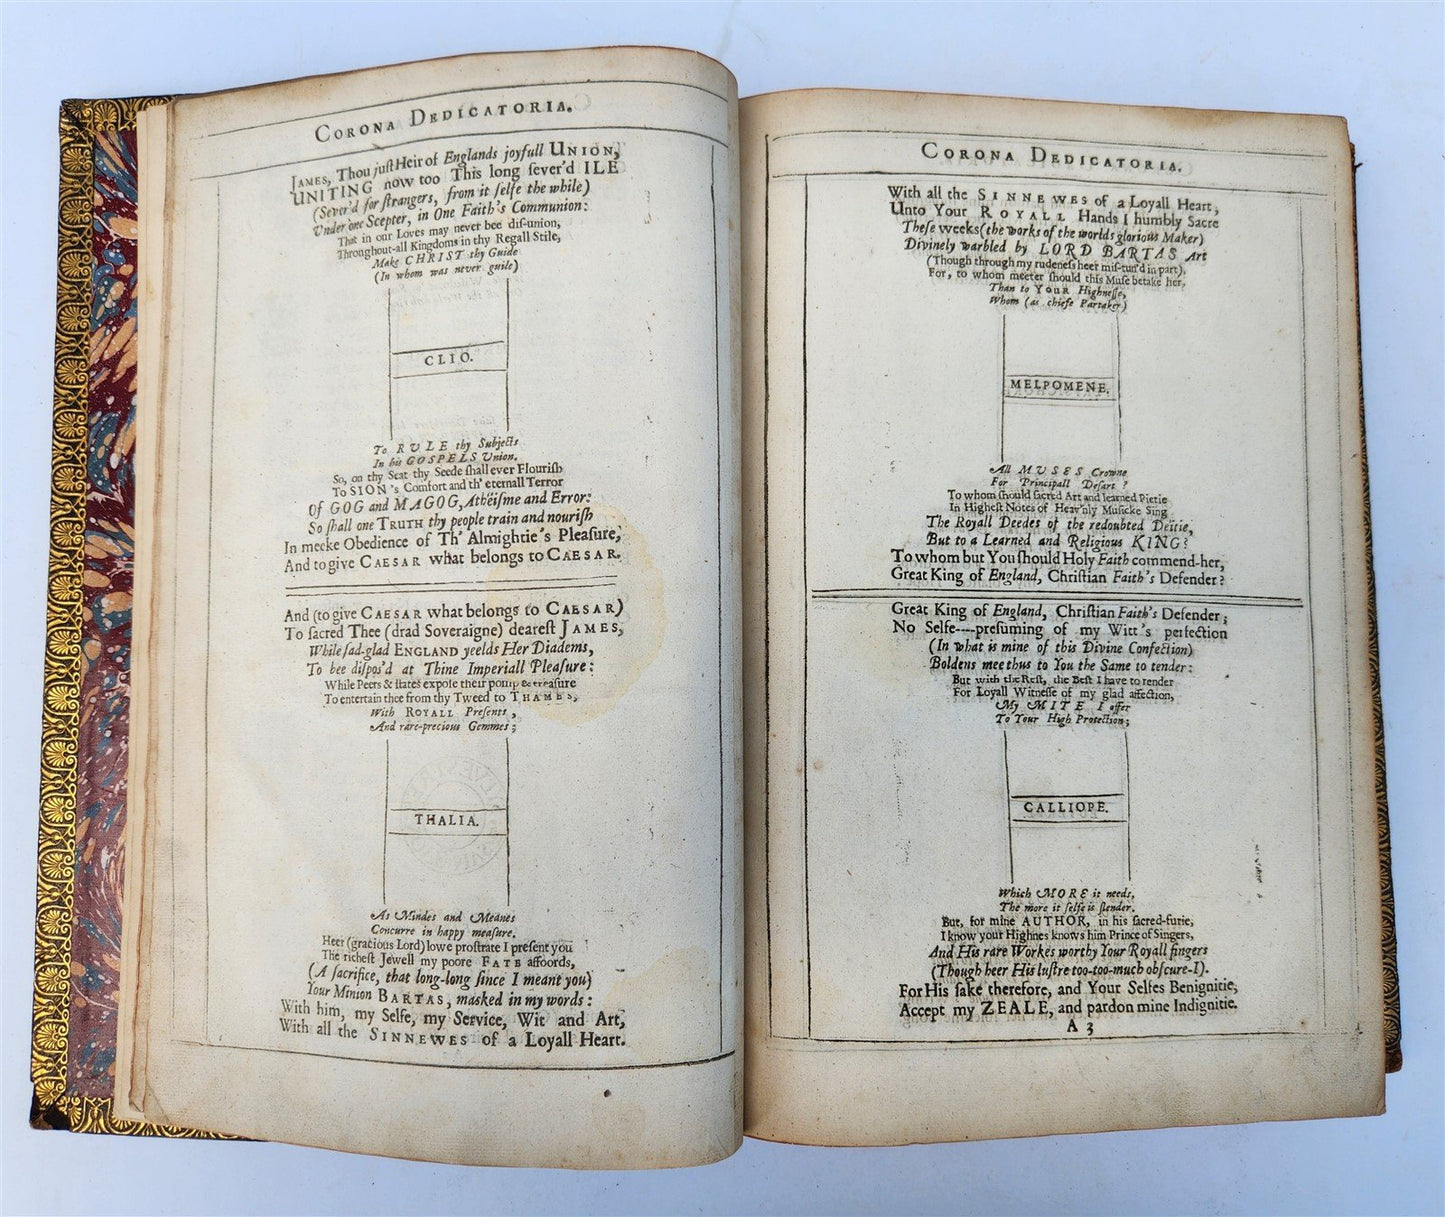 CORONA DEDICATORIA.
JAMES, Thou juſt Heir of Englands joyfull UNION,
UNITING now too This long ſever'd ILE
(Sever'd for ſtrangers, from it ſelfe the while)
Vnder one Scepter, in One Faith's Communion:
That in our Loves may never bee diſ-union,
Throughout-all Kingdoms in thy Regall Stile,
Make CHRIST thy Guide
(In whom was never guile)
CLIO.
To RVLE thy Subjects
In his GOSPELS Union.
So, on thy Seat thy Seede ſhall ever Flouriſh
To SION's Comfort and th' eternall Terror
Of GOG and MAGOG, Athëiſme and Error:
So ſhall one TRUTH thy people train and nouriſh
In meeke Obedience of Th' Almightie's Pleaſure,
And to give CAESAR what belongs to CAESAR.
And (to give CAESAR what belongs to CAESAR)
To ſacred Thee (drad Soveraigne) deareſt JAMES,
While ſad-glad ENGLAND yeelds Her Diadems,
To bee diſpos'd at Thine Imperiall Pleaſure:
While Peers & ſtates expoſe their pomp & treaſure
To entertain thee from thy Tweed to THAMES,
With ROYALL Preſents,
And rare-precious Gemmes;
THALIA.
As Mindes and Meanes
Concurre in happy meaſure.
Heer (gracious Lord) lowe proſtrate I preſent you
The richeſt Jewell my poore FATE affoords,
(A ſacrifice, that long-long ſince I meant you)
Your Minion BARTAS, masked in my words:
With him, my Selfe, my Service, Wit and Art,
With all the SINNEWES of a Loyall Heart.
CORONA DEDICATORIA.
With all the SINNEWES of a Loyall Heart,
Unto Your ROYALL Hands I humbly Sacre
Theſe weeks (the works of the worlds glorious Maker)
Divinely warbled by LORD BARTAS Art
(Though through my rudeneſs heer miſ-tun'd in part).
For, to whom meeter ſhould this Muſe betake her,
Than to YOUR Highneſſe,
Whom (as chiefe Partaker)
MELPOMENE.
All MUSES Crowne
For Principall Deſart?
To whom ſhould ſacred Art and learned Pietie
In Higheſt Notes of Heav'nly Muſicke Sing
The Royall Deedes of the redoubted Deïtie,
But to a Learned and Religious KING?
To whom but You ſhould Holy Faith commend-her,
Great King of England, Chriſtian Faith's Defender?
Great King of England, Chriſtian Faith's Defender;
No Selfe----preſuming of my Witt's perfection
(In what is mine of this Divine Confection)
Boldens mee thus to You the Same to tender:
But with the Reſt, the Beſt I have to render
For Loyall Witneſſe of my glad affection,
My MITE I offer
To Your High Protection;
CALLIOPE.
Which MORE it needs,
The more it ſelfe is ſlender.
But, for mine AUTHOR, in his ſacred-furie,
I know your Highnes knows him Prince of Singers,
And His rare Workes worthy Your Royall fingers
(Though heer His luſtre too-too-much obſcure-I).
For His ſake therefore, and Your Selfes Benignitie,
Accept my ZEALE, and pardon mine Indignitie.
A 3